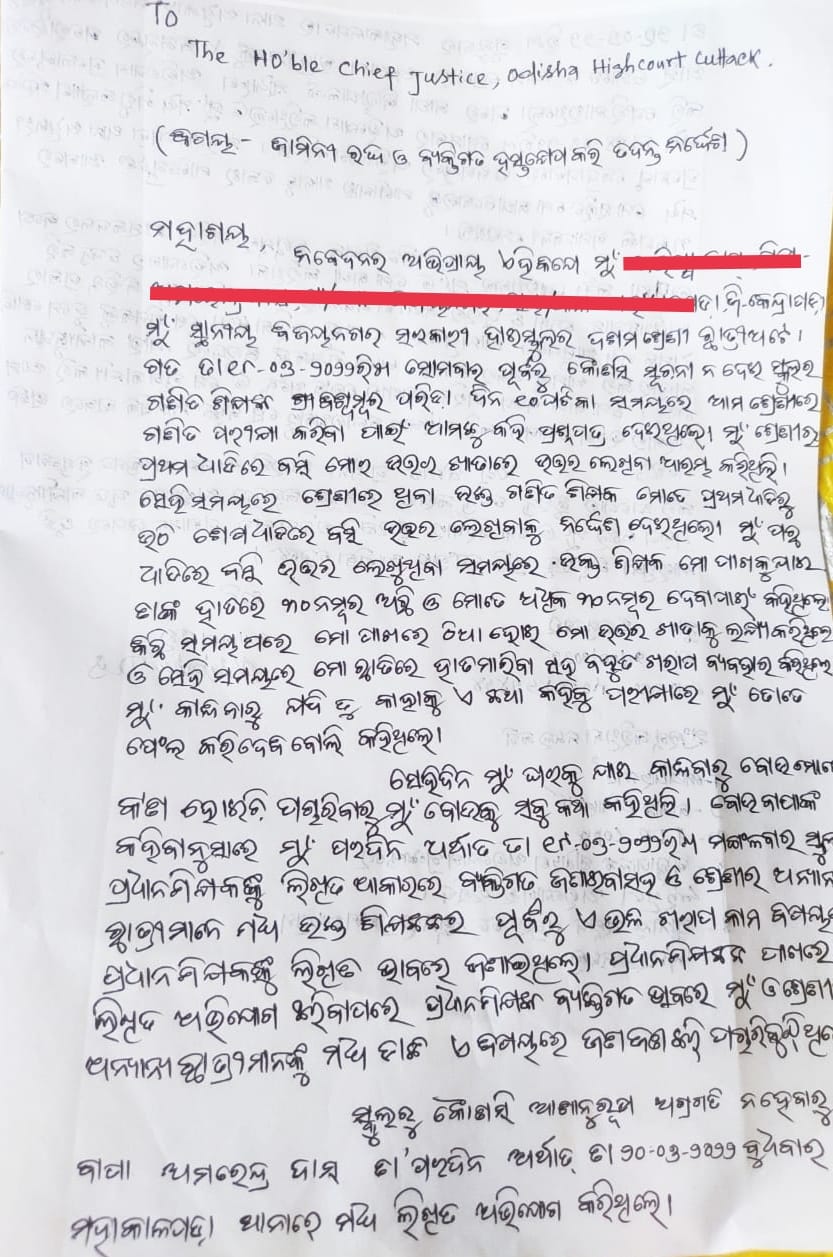 TO
The Ho'ble Chief Justice, Odisha Highcourt Cuttack.
(ବିଷୟ:- ଜାମିନୀ ରଦ୍ଦ ଓ ବ୍ୟକ୍ତିଗତ ହସ୍ତକ୍ଷେପ କରି ତଦନ୍ତ ନିର୍ଦ୍ଦେଶ)
ମହାଶୟ,
ନିବେଦନର ଅଭିପ୍ରାୟ ଏହିକିଯେ ମୁଁ
ଜି-କେନ୍ଦ୍ରାପଡ଼ା
ମୁଁ ସ୍ଥାନୀୟ ବିଜୟନଗର ସରକାରୀ ହାଇସ୍କୁଲର ଦଶମ ଶ୍ରେଣୀ ଛାତ୍ରୀଅଟେ।
ଗତ ସୋମବାର ପୂର୍ବରୁ କୌଣସି ସୂଚନା ନ ଦେଇ ସ୍କୁଲର
ଗଣିତ ଶିକ୍ଷକ ପରିଡ଼ା ଦିନ ସମୟରେ ଆମ ଶ୍ରେଣୀରେ
ଗଣିତ ପରୀକ୍ଷା କରିବା ପାଇଁ ଆମକୁ କହି ପ୍ରଶ୍ନପତ୍ର ଦେଇଥିଲେ। ମୁଁ ଶ୍ରେଣୀର
ପ୍ରଥମ ଧାଡିରେ ବସି ମୋର ଖାତାରେ ଉତ୍ତର ଲେଖିବା ଆରମ୍ଭ କରିଥିଲି।
ସେହି ସମୟରେ ଶ୍ରେଣୀରେ ଥିବା ଉକ୍ତ ଗଣିତ ଶିକ୍ଷକ ମୋତେ ପ୍ରଥମ ଧାଡିରୁ
ଉଠି ଶେଷ ଧାଡିରେ ବସି ଉତ୍ତର ଲେଖିବାକୁ ନିର୍ଦ୍ଦେଶ ଦେଇଥିଲେ। ମୁଁ ପଛ
ଧାଡିରେ ବସି ଉତ୍ତର ଲେଖୁଥିବା ସମୟରେ ଉକ୍ତ ଶିକ୍ଷକ ମୋ ପାଖକୁ ଯାଇ
ତାଙ୍କ ହାତରେ ୩୦ ନମ୍ବର ଅଛି ଓ ମୋତେ ଅଧିକ ୩୦ ନମ୍ବର ଦେବାପାଇଁ କହିଥିଲେ।
କିଛି ସମୟ ପରେ ମୋ ପାଖରେ ଠିଆ ହୋଇ ମୋ ଉତ୍ତର ଖାତାକୁ ଲକ୍ଷ୍ୟ କରିଥିଲେ
ଓ ସେହି ସମୟରେ ମୋ ଛାତିରେ ହାତମାରିବା ସହ ବହୁତ ଖରାପ ବ୍ୟବହାର କରିଥିଲେ
ମୁଁ କାନ୍ଦିବାରୁ ଯଦି ତୁ କାହାକୁ ଏ କଥା କହିବୁ ପରୀକ୍ଷାରେ ମୁଁ ତୋତେ
ଫେଲ କରିଦେବି ବୋଲି କହିଥିଲେ।
ସେଇଦିନ ମୁଁ ଘରକୁ ଯାଇ କାନ୍ଦିବାରୁ ବୋଉ ମୋତେ
କ'ଣ ହୋଇଛି ପଚାରିବାରୁ ମୁଁ ବୋଉକୁ ସବୁ କଥା କହିଥିଲି। ବୋଉ ବାପାଙ୍କ
କହିବାନୁସାରେ ମୁଁ ପରଦିନ ଅର୍ଥାତ ମଙ୍ଗଳବାର ସ୍କୁଲ
ପ୍ରଧାନଶିକ୍ଷକଙ୍କୁ ଲିଖିତ ଆକାରରେ ବ୍ୟକ୍ତିଗତ ଜଣାଇବାସହ ଓ ଶ୍ରେଣୀର ଅନ୍ୟାନ୍ୟ
ଛାତ୍ରୀମାନେ ମଧ୍ୟ ଉକ୍ତ ଶିକ୍ଷକଙ୍କର ପୂର୍ବରୁ ଏ ଭଳି ଖରାପ କାମ ବିଷୟରେ
ପ୍ରଧାନଶିକ୍ଷକଙ୍କୁ ଲିଖିତ ଭାବରେ ଜଣାଇଥିଲେ। ପ୍ରଧାନଶିକ୍ଷକଙ୍କ ପାଖରେ
ଲିଖିତ ଅଭିଯୋଗ କରିବାପରେ ପ୍ରଧାନଶିକ୍ଷକ ବ୍ୟକ୍ତିଗତ ଭାବରେ ମୁଁ ଓ ଶ୍ରେଣୀ
ଅନ୍ୟାନ୍ୟ ଛାତ୍ରୀମାନଙ୍କୁ ମଧ୍ୟ ଡାକି ଏ ବିଷୟରେ ଜଣଜଣ କରି
ସ୍କୁଲରୁ କୌଣସି ଆଶାନୁରୂପ ଅଗ୍ରଗତି ନହେବାରୁ
ବାପା ଅମରେନ୍ଦ୍ର ଦାସ ତା'ପରଦିନ ଅର୍ଥାତ୍ ତା ୨୦-୦୩-୨୦୨୨ ବୁଧବାର
ମହାକାଳପଡ଼ା ଥାନାରେ ମଧ୍ୟ ଲିଖିତ ଅଭିଯୋଗ କରିଥିଲେ।